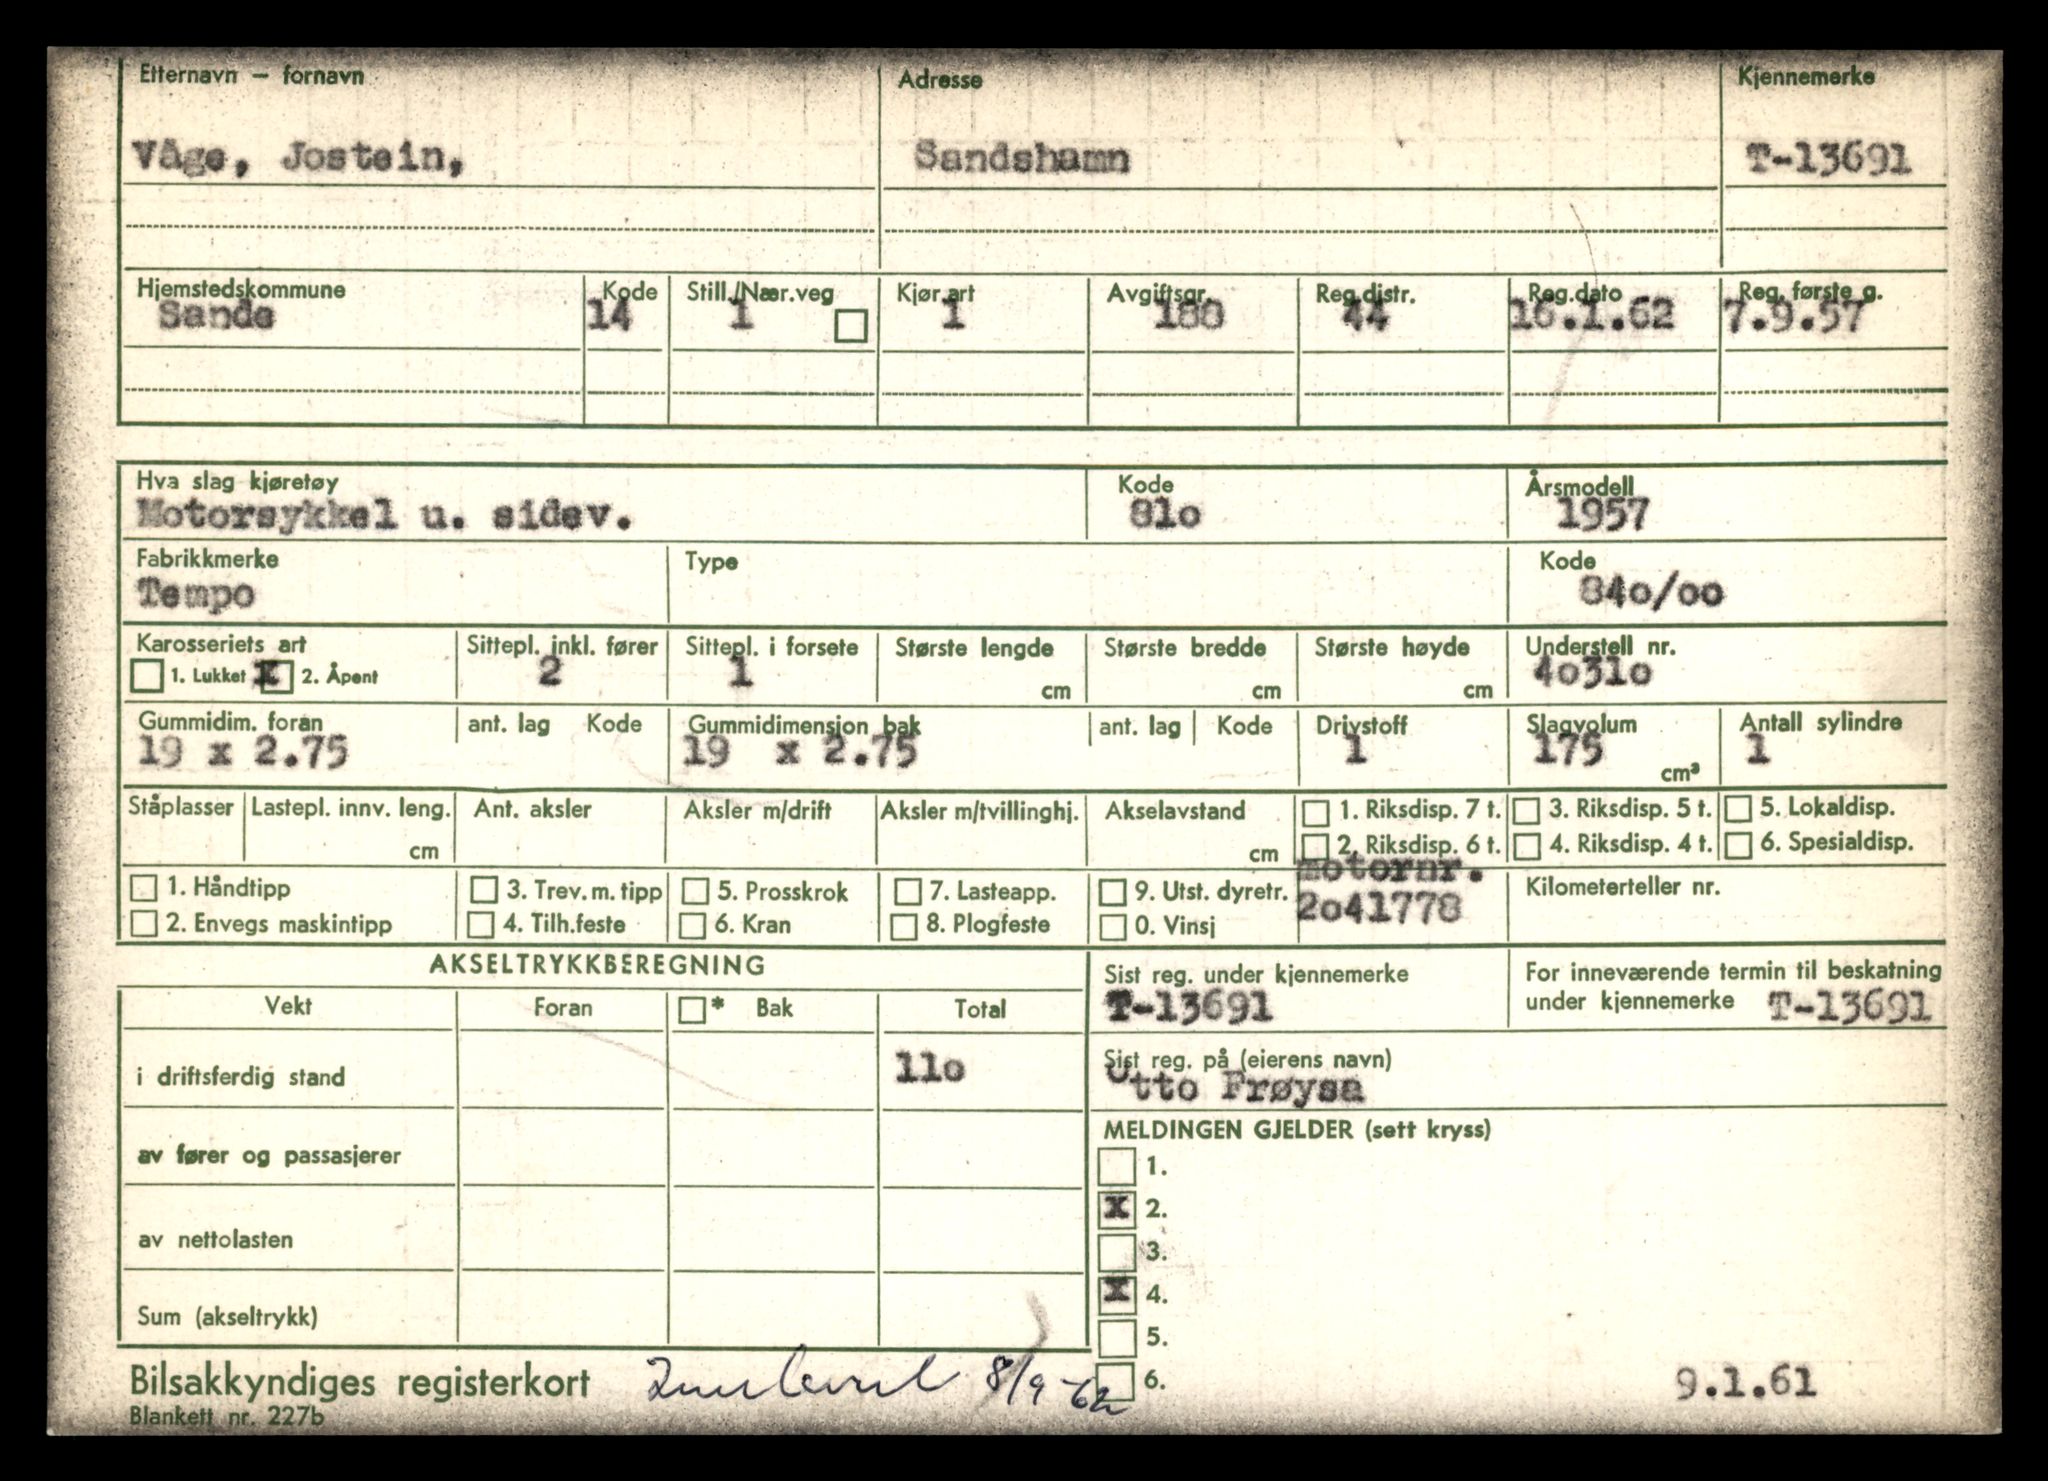 Etternavn – fornavn Adresse Kjennemerke
Våge, Jostein, Sandshamn T-13691
Hjemstedskommune Kode Still./Nær.veg Kjør.art Avgiftsgr. Reg.distr. Reg.dato Reg. første g.
Sande 14 1 1 188 44 16.1.62 7.9.57
Hva slag kjøretøy Kode Årsmodell
Motorsykkel u. sidev. 81o 1957
Fabrikkmerke Type Kode
Tempo 84o/oo
Karosseriets art Sittepl. inkl. fører Sittepl. i forsete Største lengde Største bredde Største høyde Understell nr.
1. Lukket X 2. Åpent 2 1 cm cm cm 4o31o
Gummidim. foran ant. lag Kode Gummidimensjon bak ant. lag Kode Drivstoff Slagvolum Antall sylindre
19 x 2.75 19 x 2.75 1 175 cm³ 1
Ståplasser Lastepl. innv. leng. Ant. aksler Aksler m/drift Aksler m/tvillinghj. Akselavstand 1. Riksdisp. 7 t. 3. Riksdisp. 5 t. 5. Lokaldisp.
cm cm 2. Riksdisp. 6 t. 4. Riksdisp. 4 t. 6. Spesialdisp.
motornr.
1. Håndtipp 3. Trev. m. tipp 5. Prosskrok 7. Lasteapp. 9. Utst. dyretr. Kilometerteller nr.
2. Envegs maskintipp 4. Tilh.feste 6. Kran 8. Plogfeste 0. Vinsj 2o41778
AKSELTRYKKBEREGNING Sist reg. under kjennemerke For inneværende termin til beskatning
Vekt Foran * Bak Total T-13691 under kjennemerke T-13691
i driftsferdig stand 11o Sist reg. på (eierens navn)
Otto Frøysa
av fører og passasjerer MELDINGEN GJELDER (sett kryss)
1.
X 2.
av nettolasten 3.
X 4.
Sum (akseltrykk) 5.
Bilsakkyndiges registerkort 8/9-62 6. 9.1.61
Blankett nr. 227b